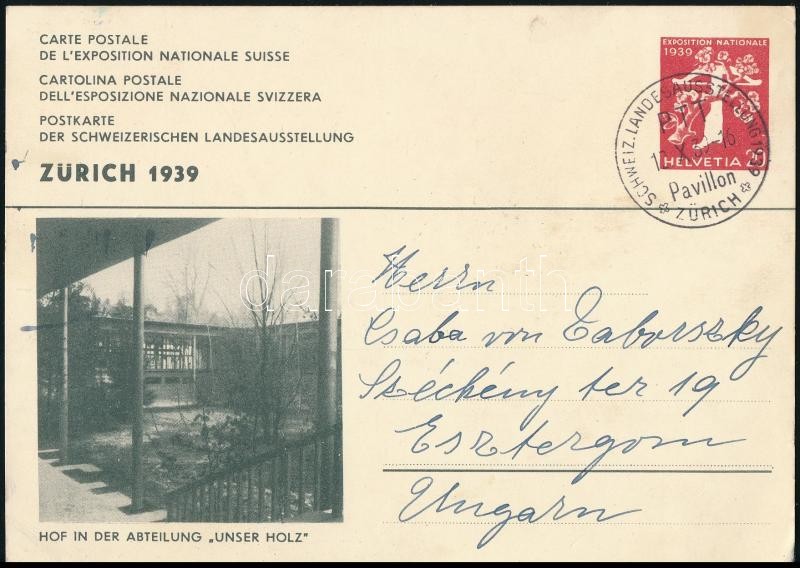 CARTE POSTALE
DE L'EXPOSITION NATIONALE SUISSE
CARTOLINA POSTALE
DELL'ESPOSIZIONE NAZIONALE SVIZZERA
POSTKARTE
DER SCHWEIZERISCHEN LANDESAUSSTELLUNG
ZÜRICH 1939
EXPOSITION NATIONALE
1939
HELVETIA 20
SCHWEIZ. LANDESAUSSTELLUNG 1939
PTT
X.39-16
Pavillon
ZÜRICH
Herrn
Csaba von Taborszky
Széchény ter 19
Esztergom
Ungarn
darabanth
HOF IN DER ABTEILUNG „UNSER HOLZ"